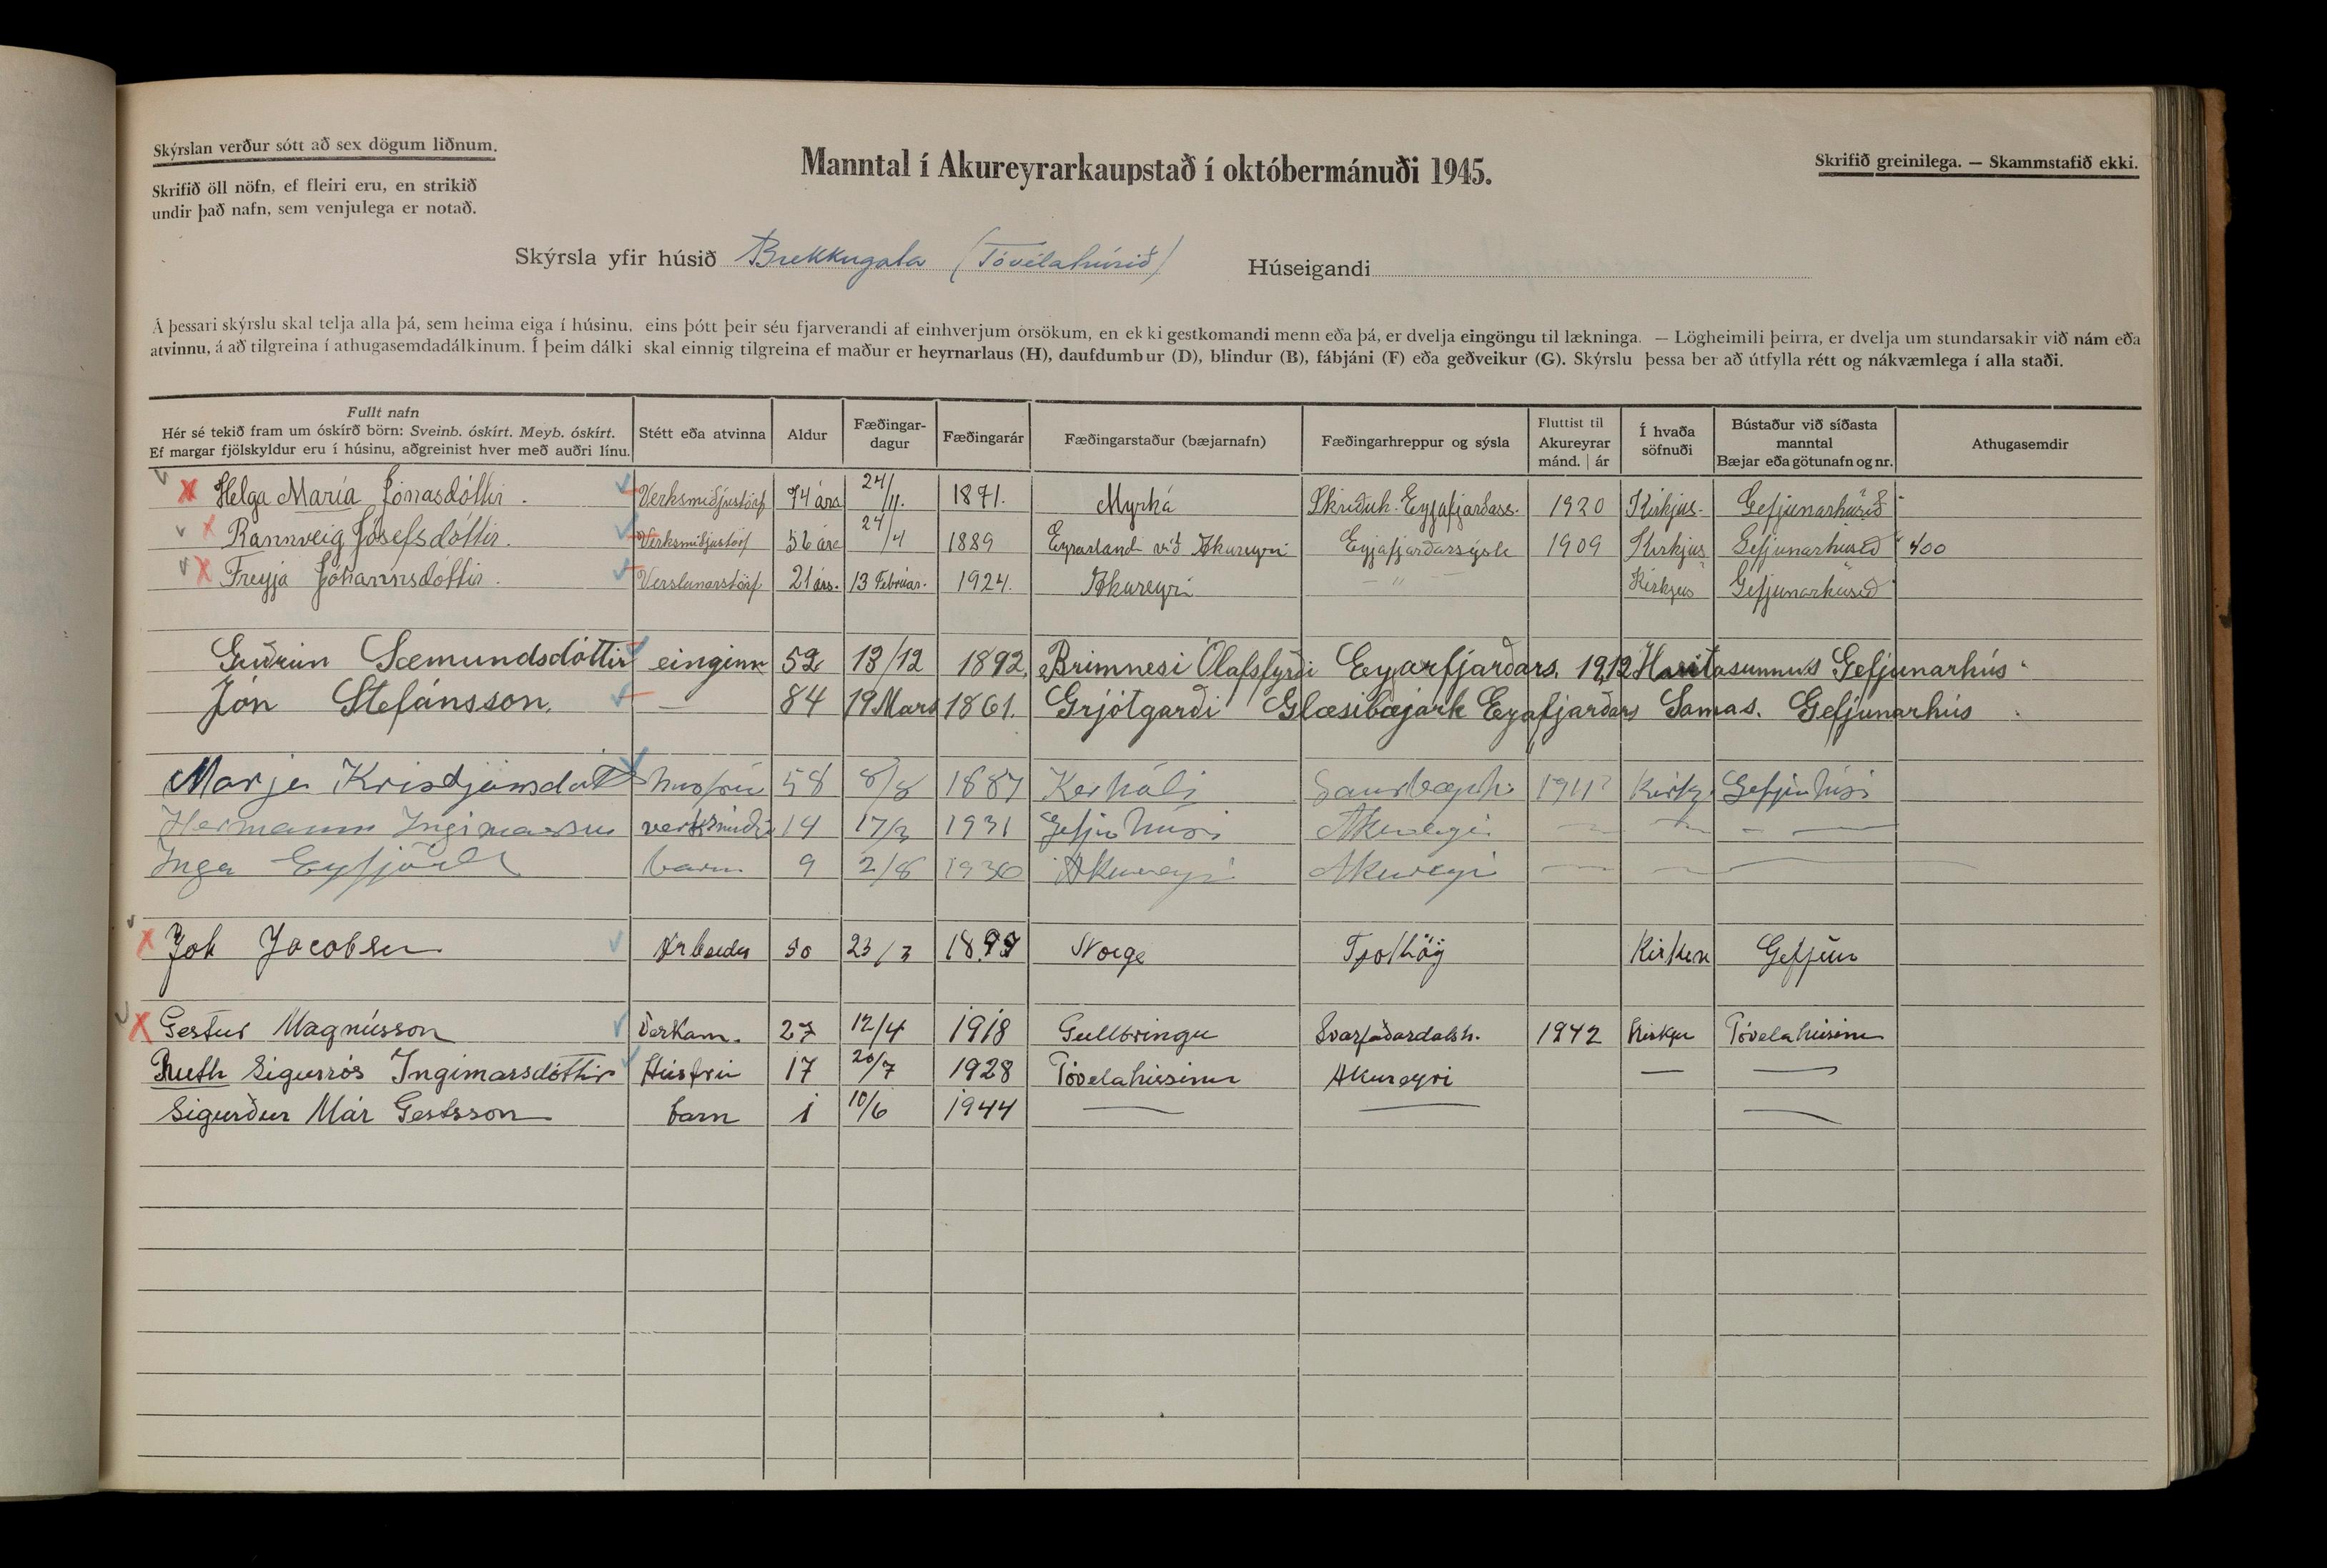 Skýrslan verður sótt að sex dögum liðnum.
Skrifið öll nöfn, ef fleiri eru, en strikið
undir það nafn, sem venjulega er notað.
Manntal í Akureyrarkaupstað í októbermánuði 1945.
Skrifið greinilega. — Skammstafið ekki.
Skýrsla yfir húsið Brekkugata (Tóvélahúsið) Húseigandi
Á þessari skýrslu skal telja alla þá, sem heima eiga í húsinu, eins þótt þeir séu fjarverandi af einhverjum orsökum, en ekki gestkomandi menn eða þá, er dvelja eingöngu til lækninga. — Lögheimili þeirra, er dvelja um stundarsakir við nám eða
atvinnu, á að tilgreina í athugasemdadálkinum. Í þeim dálki skal einnig tilgreina ef maður er heyrnarlaus (H), daufdumbur (D), blindur (B), fábjáni (F) eða geðveikur (G). Skýrslu þessa ber að útfylla rétt og nákvæmlega í alla staði.
Fullt nafn
Hér sé tekið fram um óskírð börn: Sveinb. óskírt. Meyb. óskírt.
Ef margar fjölskyldur eru í húsinu, aðgreinist hver með auðri línu.
Stétt eða atvinna
Aldur
Fæðingar-
dagur
Fæðingarár
Fæðingarstaður (bæjarnafn)
Fæðingarhreppur og sýsla
Fluttist til
Akureyrar
mánd. | ár
Í hvaða
söfnuði
Bústaður við síðasta
manntal
Bæjar eða götunafn og nr.
Athugasemdir
Helga María Jónasdóttir. Verksmiðjustörf 74 ára 24/11. 1871. Myrká Skriðuh. Eyjafjarðars. 1920 Kirkjus. Gefjunarhúsið
Rannveig Jósefsdóttir. Verksmiðjustörf 56 ára 24/4 1889 Eyrarlandi við Akureyri Eyjafjarðarsýsla 1909 Kirkjus Gefjunarhúsið 400
Freyja Jóhannsdóttir. Verslunarstörf 21 árs. 13 Febrúar. 1924. Akureyri — " — Kirkjus Gefjunarhúsið
Guðrún Sæmundsdóttir einginn 52 13/12 1892. Brimnesi Ólafsfyrði Eyarfjarðars. 1912 Gefjunarhús
Jón Stefánsson. — 84 19 Mars 1861. Grjótgarði Glæsibæjark Eyafjarðars Samas. Gefjunarhús
Marja Krisdjánsdót húsfrú 58 8/8 1887 Kerhóli 1911 Kirkj Gefjunhúsi
Hermann Ingimarsson 14 17/3 1931 Gefjunhúsi Akureyri — — — —
Inga Eyfjörð barn 9 2/8 1936 Akureyri Akureyri — — —
Joh Jacobsen Arbeider 50 23/3 Norge Kirken Gefjun
Gestur Magnússon Verkam. 27 12/4 1918 Gullbringu Svarfaðardalsh. 1942 Kirkju Tóvelahúsinu
Ruth Sigurrós Ingimarsdóttir Húsfrú 17 20/7 1928 Tóvelahúsinu Akureyri — —
Sigurður Már Gestsson barn 1 10/6 1944 — — —